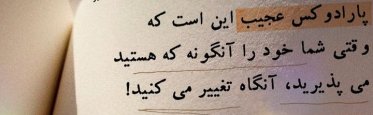 پارادوکس عجیب این است که
وقتی شما خود را آنگونه که هستید
می پذیرید، آنگاه تغییر می کنید!